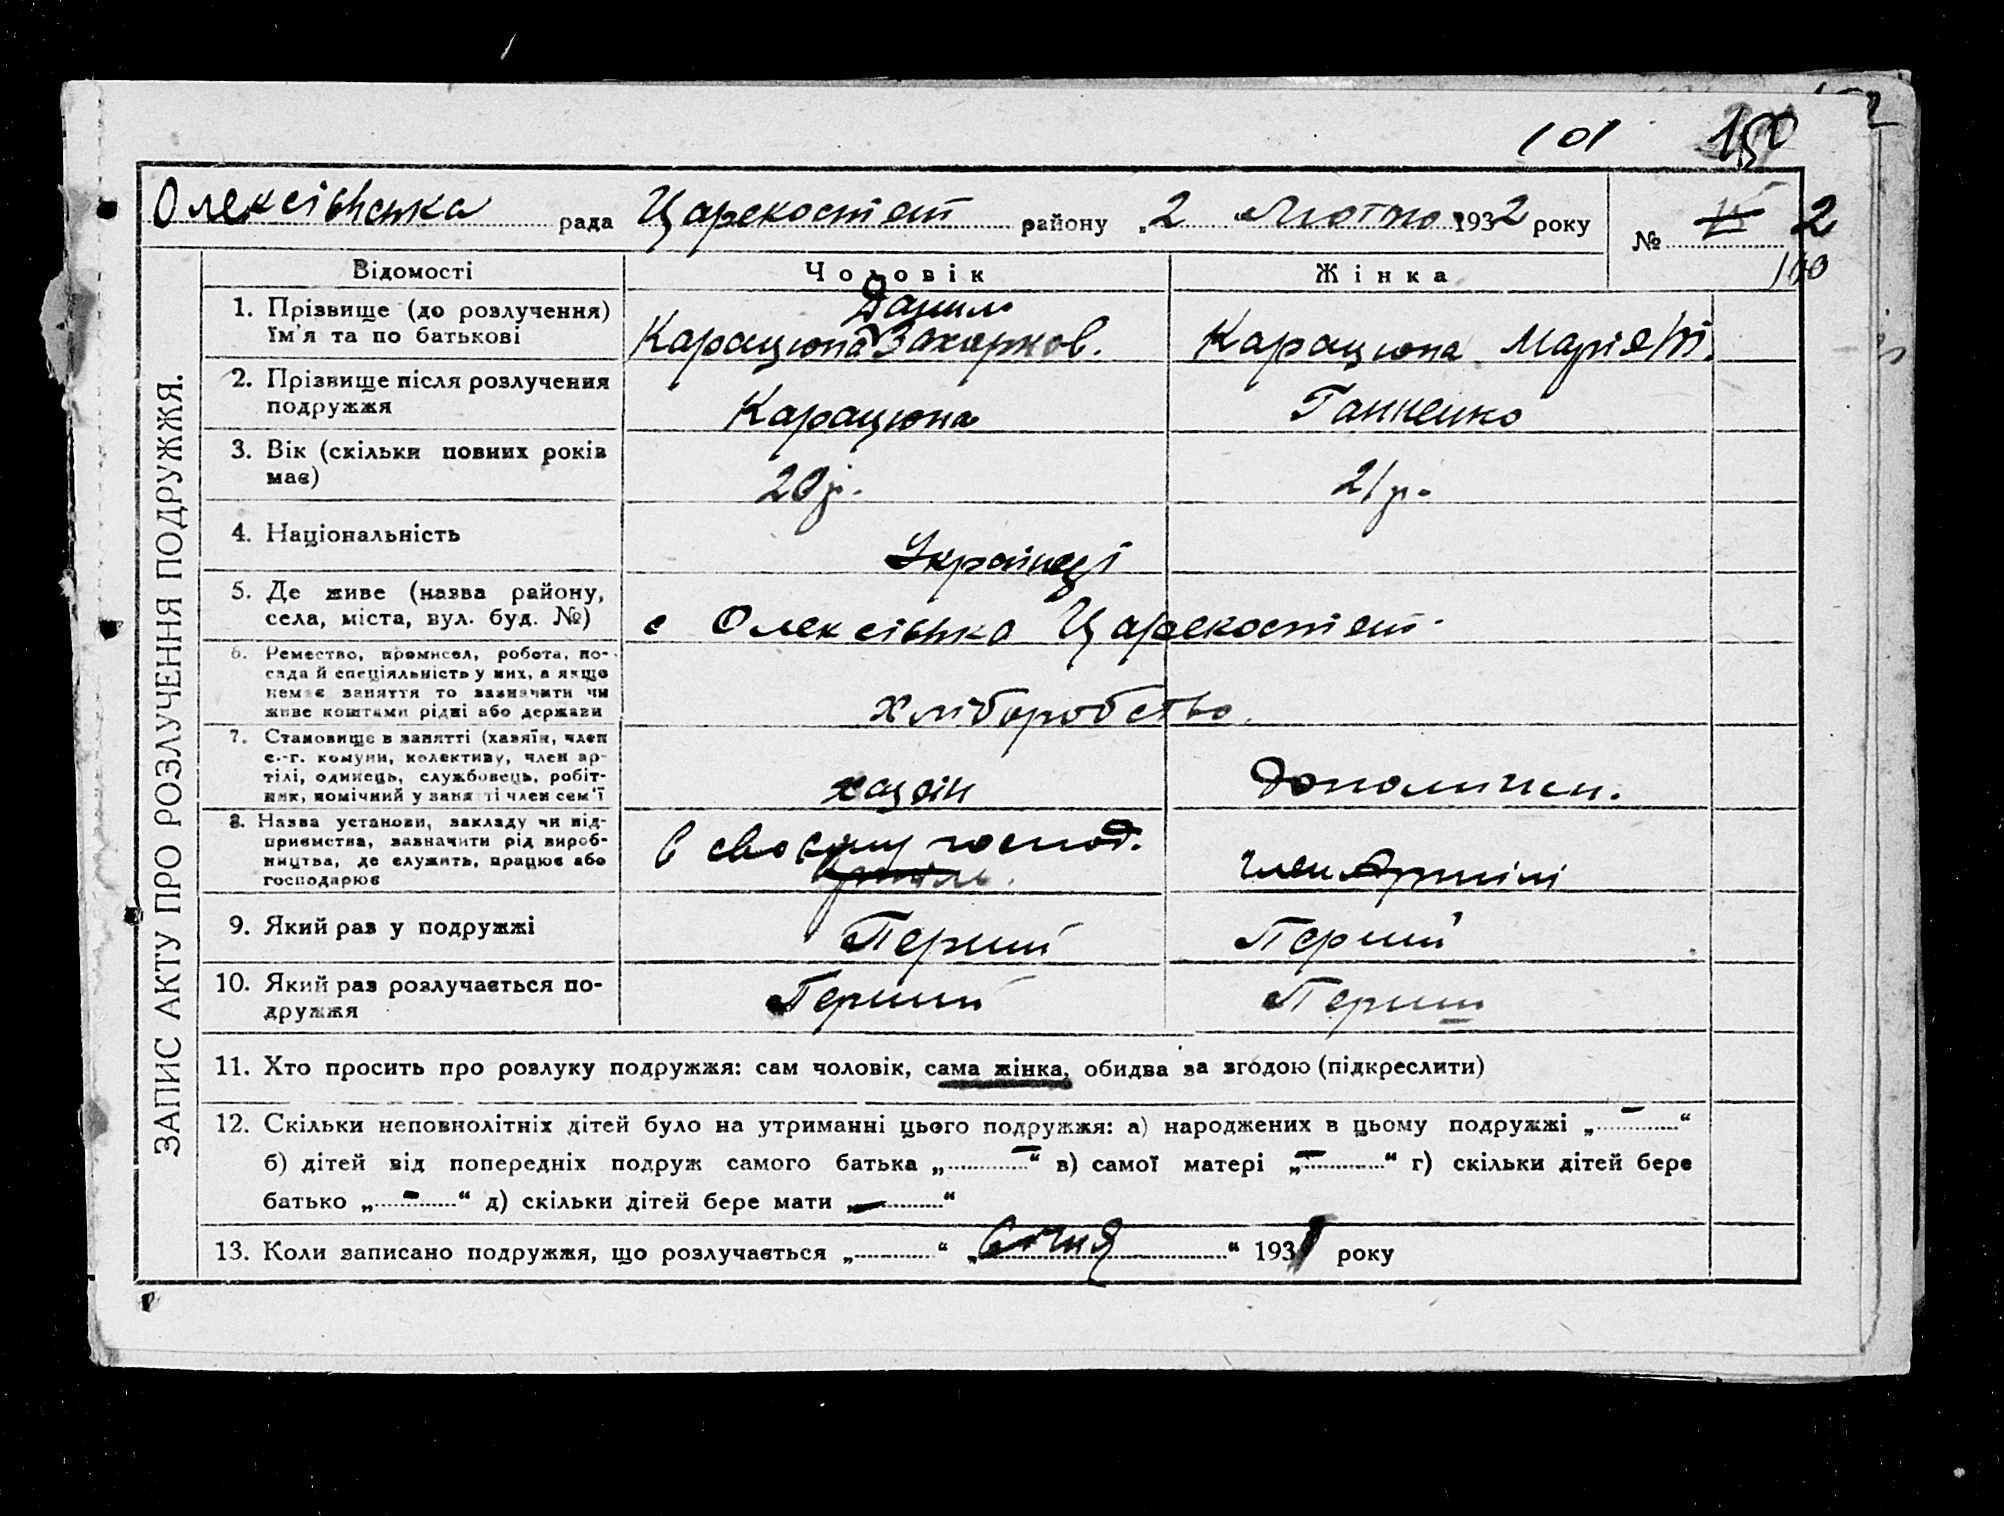 101 150
Олексівська рада Царекостент району „2 Лютого 1932 року № 2
100
ЗАПИС АКТУ ПРО РОЗЛУЧЕННЯ ПОДРУЖЖЯ.
Відомості Чоловік Жінка
Данил
1. Прізвище (до розлучення) їм'я та по батькові Карацюпа Захарков. Карацюпа Марія
2. Прізвище після розлучення подружжя Карацюпа Ганненко
3. Вік (скільки повних років має) 20 р. 21 р.
4. Національність Українці
5. Де живе (назва району, села, міста, вул. буд. №) с Олексівка Царекостент.
6. Ремество, промисел, робота, посада й спеціяльність у них, а якщо немає заняття то зазначити чи живе коштами рідні або держави хліборобство.
7. Становище в занятті (хазяїн, член с.-г. комуни, колективу, член артілі, одинець, службовець, робітник, помічний у занятті член сем'ї хазяїн
8. Назва установи, закладу чи підприємства, зазначити рід виробництва, де служить, працює або господарює в своєму господ. член Артілі
9. Який раз у подружжі Перший Перший
10. Який раз розлучається подружжя Перший Перший
11. Хто просить про розлуку подружжя: сам чоловік, сама жінка, обидва за згодою (підкреслити)
12. Скільки неповнолітніх дітей було на утриманні цього подружжя: а) народжених в цьому подружжі „—“
б) дітей від попередніх подруж самого батька „—“ в) самої матері „—“ г) скільки дітей бере
батько „—“ д) скільки дітей бере мати „—“
13. Коли записано подружжя, що розлучається „ “ „Січня“ 1931 року